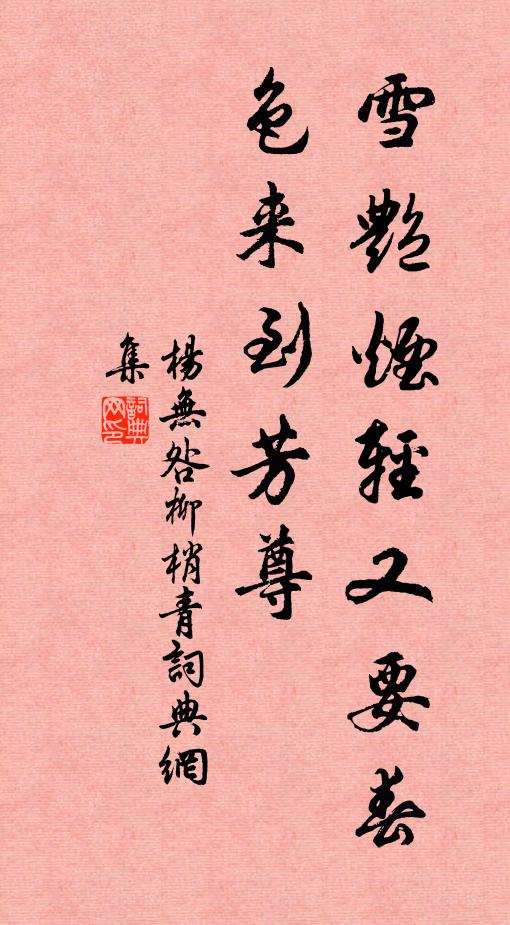 雪艷煙輕又要春
色来到芳尊
楊無咎柳梢青詞典網
集
詞典網印